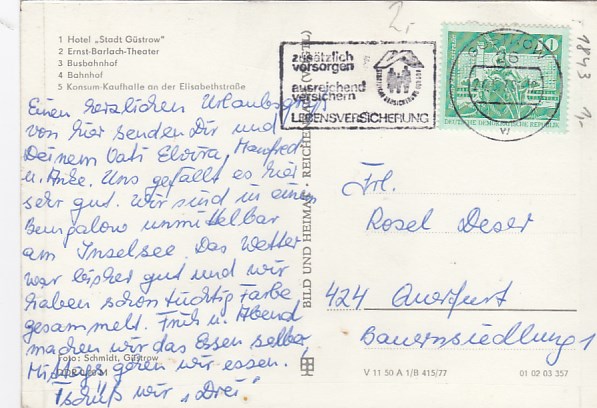 1 Hotel „Stadt Güstrow"
2 Ernst-Barlach-Theater
3 Busbahnhof
4 Bahnhof
5 Konsum-Kaufhalle an der Elisabethstraße
Einen herzlichen Urlaubsgruß
von hier senden Dir und
Deinem Vati Elvira, Manfred
u. Anke. Uns gefällt es hier
sehr gut. Wir sind in einem
Bungalow unmittelbar
am Inselsee. Das Wetter
war bisher gut und wir
haben schon tüchtig Farbe
gesammelt. Früh u. Abend
machen wir das Essen selber,
Mittags gehen wir essen.
Tschüß wir „Drei"
Foto: Schmidt, Güstrow
BILD UND HEIMAT · REICHENBACH (VOGTL)
zusätzlich
vorsorgen
ausreichend
versichern
LEBENSVERSICHERUNG
DEUTSCHE DEMOKRATISCHE REPUBLIK
10
2,-
1843
1,-
Frl.
Rosel Deser
424 Querfurt
Bauernsiedlung 1
V 11 50 A 1/B 415/77
01 02 03 357